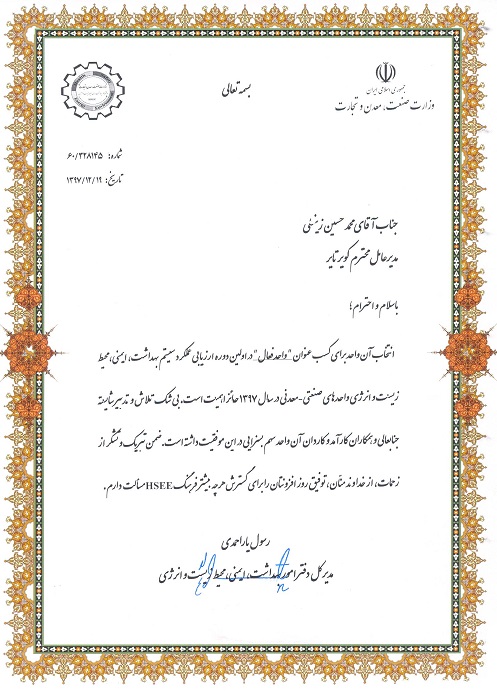 بسمه تعالی
جمهوری اسلامی ایران
وزارت صنعت، معدن و تجارت
شماره: ۶۰/۳۲۸۱۴۵
تاریخ: ۱۳۹۷/۱۲/۱۹
جناب آقای محمد حسین زینلی
مدیرعامل محترم کویر تایر
باسلام و احترام؛
انتخاب آن واحد برای کسب عنوان "واحد فعال" در اولین دوره ارزیابی عملکرد سیستم بهداشت، ایمنی، محیط
زیست و انرژی واحدهای صنعتی-معدنی در سال ۱۳۹۷ حائز اهمیت است. بی شک تلاش و تدبیر شایسته
جنابعالی و همکاران کارآمد و کاردان آن واحد سهم بسزایی در این موفقیت داشته است. ضمن تبریک و تشکر از
زحمات، از خداوند منّان، توفیق روز افزونتان را برای گسترش هرچه بیشتر فرهنگ HSEE مسألت دارم.
رسول یاراحمدی
مدیرکل دفتر امور بهداشت، ایمنی، محیط زیست و انرژی